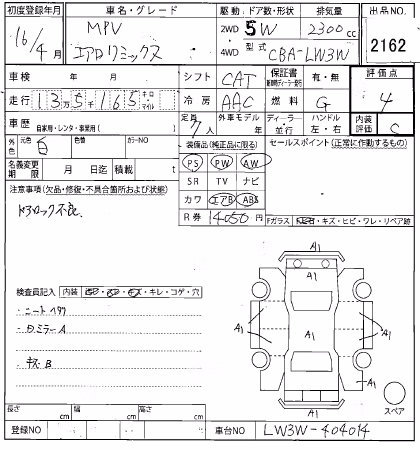 初度登録年月 車名・グレード 駆動: ドア数・形状 排気量 出品NO.
16/4月 MPV 2WD 5W 2300cc 2162
エアロリミックス 4WD 型式 CBA-LW3W
車検 年 月 シフト CAT 保証書 有・無 評価点
走行 13万5千165 キロ マイル 冷房 AAC 燃料 G 4
車歴 自家用・レンタ・事業用( ) 定員 7人 外車モデル 年 ディーラー・並行 ハンドル 左・右 内装評価 C
外色 元色 白 色替 カラーNO 装備品(純正品に限る) セールスポイント(正常に作動するもの)
名義変更期限 月 日迄 積載 t PS PW AW
SR TV ナビ
注意事項(欠品・修復・不具合箇所および状態) カワ エアB ABS
ドアロック不良 R券 14050円 Fガラス キズ・ヒビ・ワレ・リペア跡
A1
検査員記入 内装 キズ・キレ・コゲ・穴
A1 A1 A1
・ミラーA
・キズB
A1
A1
スペア
長さ cm 幅 cm 高さ cm
登録NO 車台NO LW3W-404014